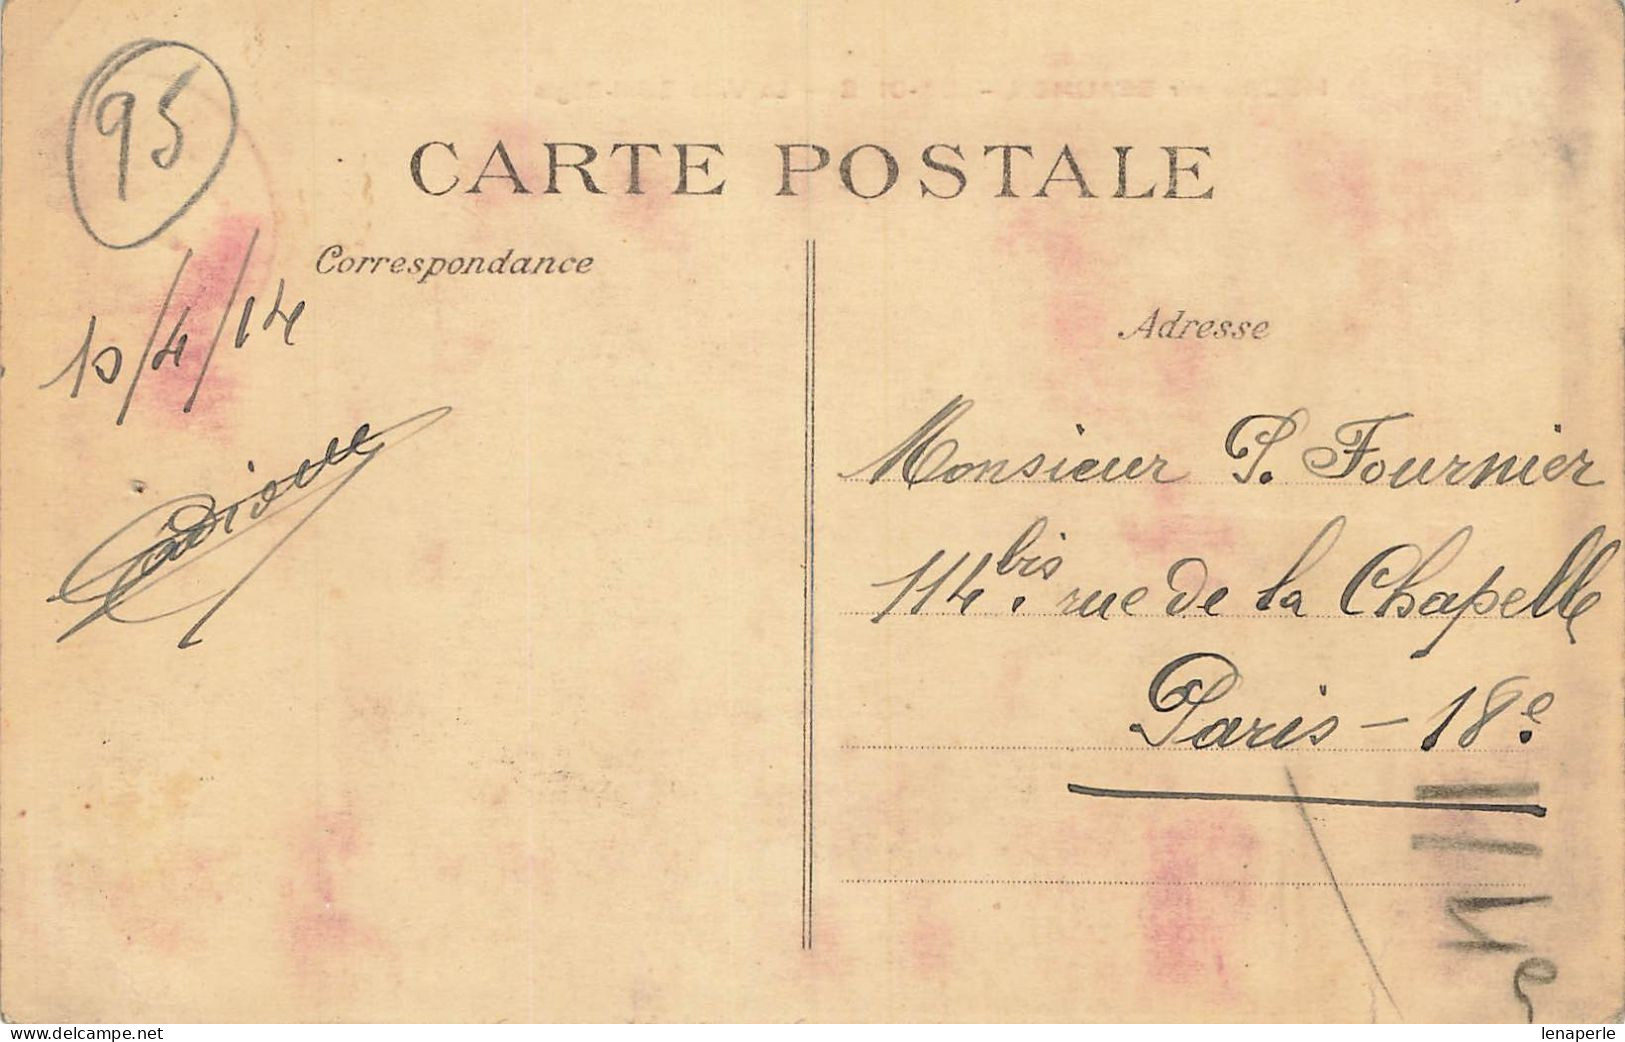 95
CARTE POSTALE
Correspondance
10/4/14
Adresse
Monsieur P. Fournier
114bis. rue de la Chapelle
Paris - 18e.
www.delcampe.net
lenaperle